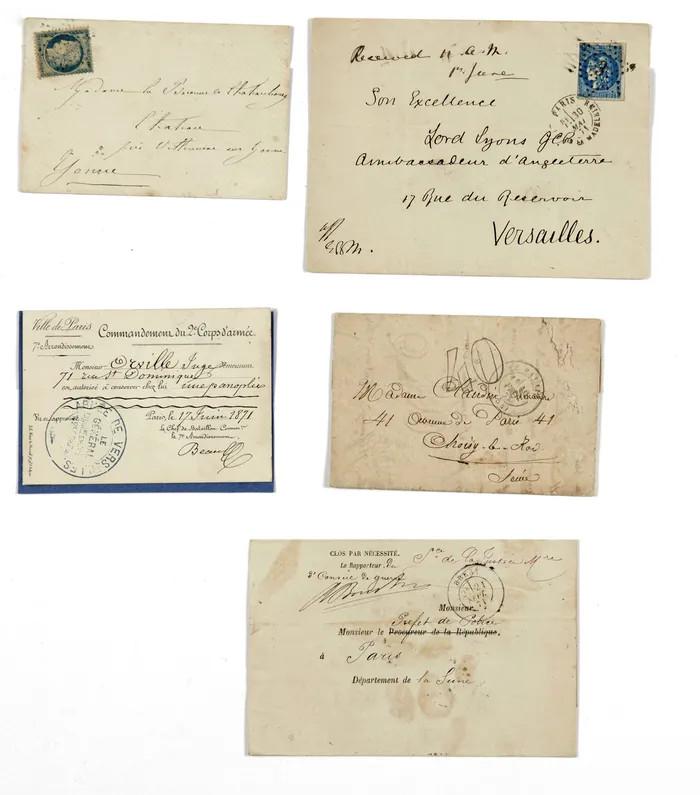 Madame la
Château
près Villeneuve sur Yonne
Yonne
Received 11 A.M.
1er June
Son Excellence
Lord Lyons GCB
Ambassadeur d'Angleterre
17 Rue du Reservoir
Versailles.
PARIS
30
MAI
71
Ville de Paris
7e Arrondissement
Commandement du 2e Corps d'armée
Monsieur Orville Juge demeurant
71 rue St Dominique
est autorisé à conserver chez lui une panoplie
Paris, le 17 Juin 1871
Le Chef de Bataillon Comm
le 7e Arrondissement
ARMÉE DE VERSAILLES
LE
GÉNÉRAL
40
Madame
41 Avenue de Paris 41
Choisy-le-Roi
Seine
CLOS PAR NÉCESSITÉ.
Le Rapporteur du
3e Conseil de guerre
Sce de la Justice Mre
BREST
21
71
Monsieur
Préfet de Police
Monsieur le Procureur de la République.
à Paris
Département de la Seine